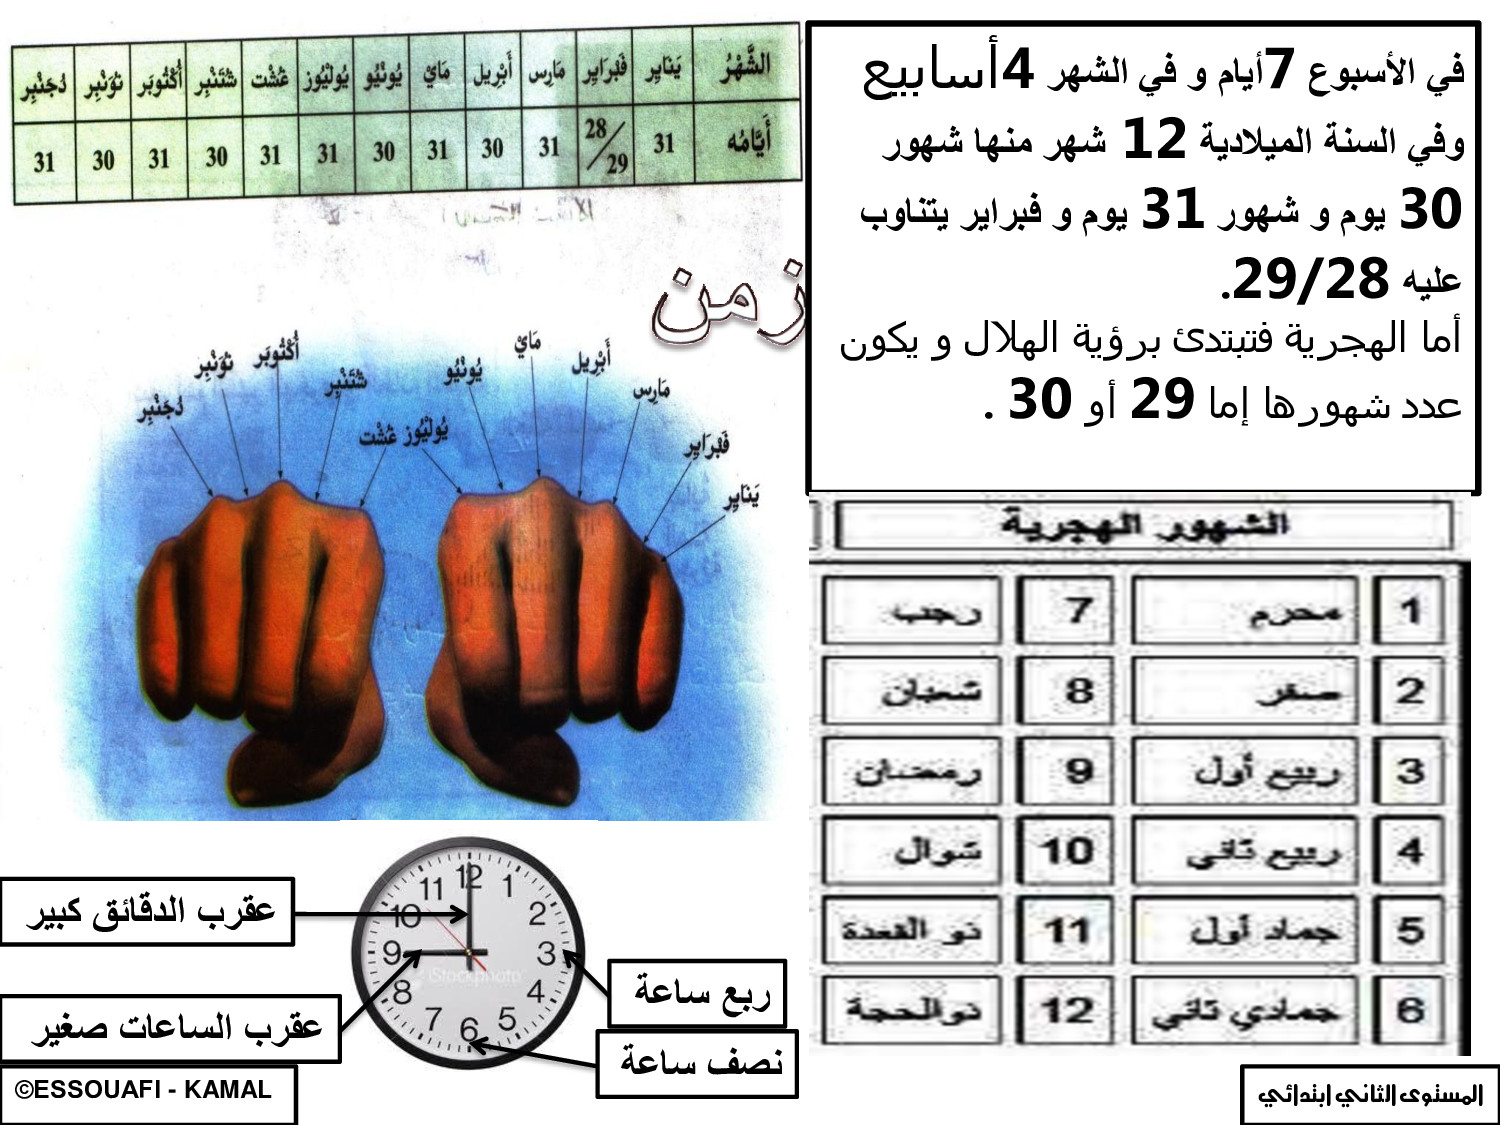 الشَّهْرُ يَنَايِر فَبْرَايِر مَارِس أَبْرِيل مَايْ يُونْيُو يُولْيُوز غُشْت شُتَنْبِر أُكْتُوبَر نُوَنْبِر دُجَنْبِر
أَيَّامُه 31 28/29 31 30 31 30 31 31 30 31 30 31
في الأسبوع 7أيام و في الشهر 4أسابيع
وفي السنة الميلادية 12 شهر منها شهور
30 يوم و شهور 31 يوم و فبراير يتناوب
عليه 29/28.
أما الهجرية فتبتدئ برؤية الهلال و يكون
عدد شهورها إما 29 أو 30 .
زمن
يَنَايِر
فَبْرَايِر
مَارِس
أَبْرِيل
مَايْ
يُونْيُو
يُولْيُوز غُشْت
شُتَنْبِر
أُكْتُوبَر
نُوَنْبِر
دُجَنْبِر
الشهور الهجرية
1 محرم 7 رجب
2 صفر 8 شعبان
3 ربيع أول 9 رمضان
4 ربيع ثاني 10 شوال
5 جماد أول 11 ذو القعدة
6 جمادي ثاني 12 ذوالحجة
عقرب الدقائق كبير
عقرب الساعات صغير
12
1
2
3
4
5
6
7
8
9
10
11
iStockphoto
ربع ساعة
نصف ساعة
©ESSOUAFI - KAMAL
المستوى الثاني ابتدائي